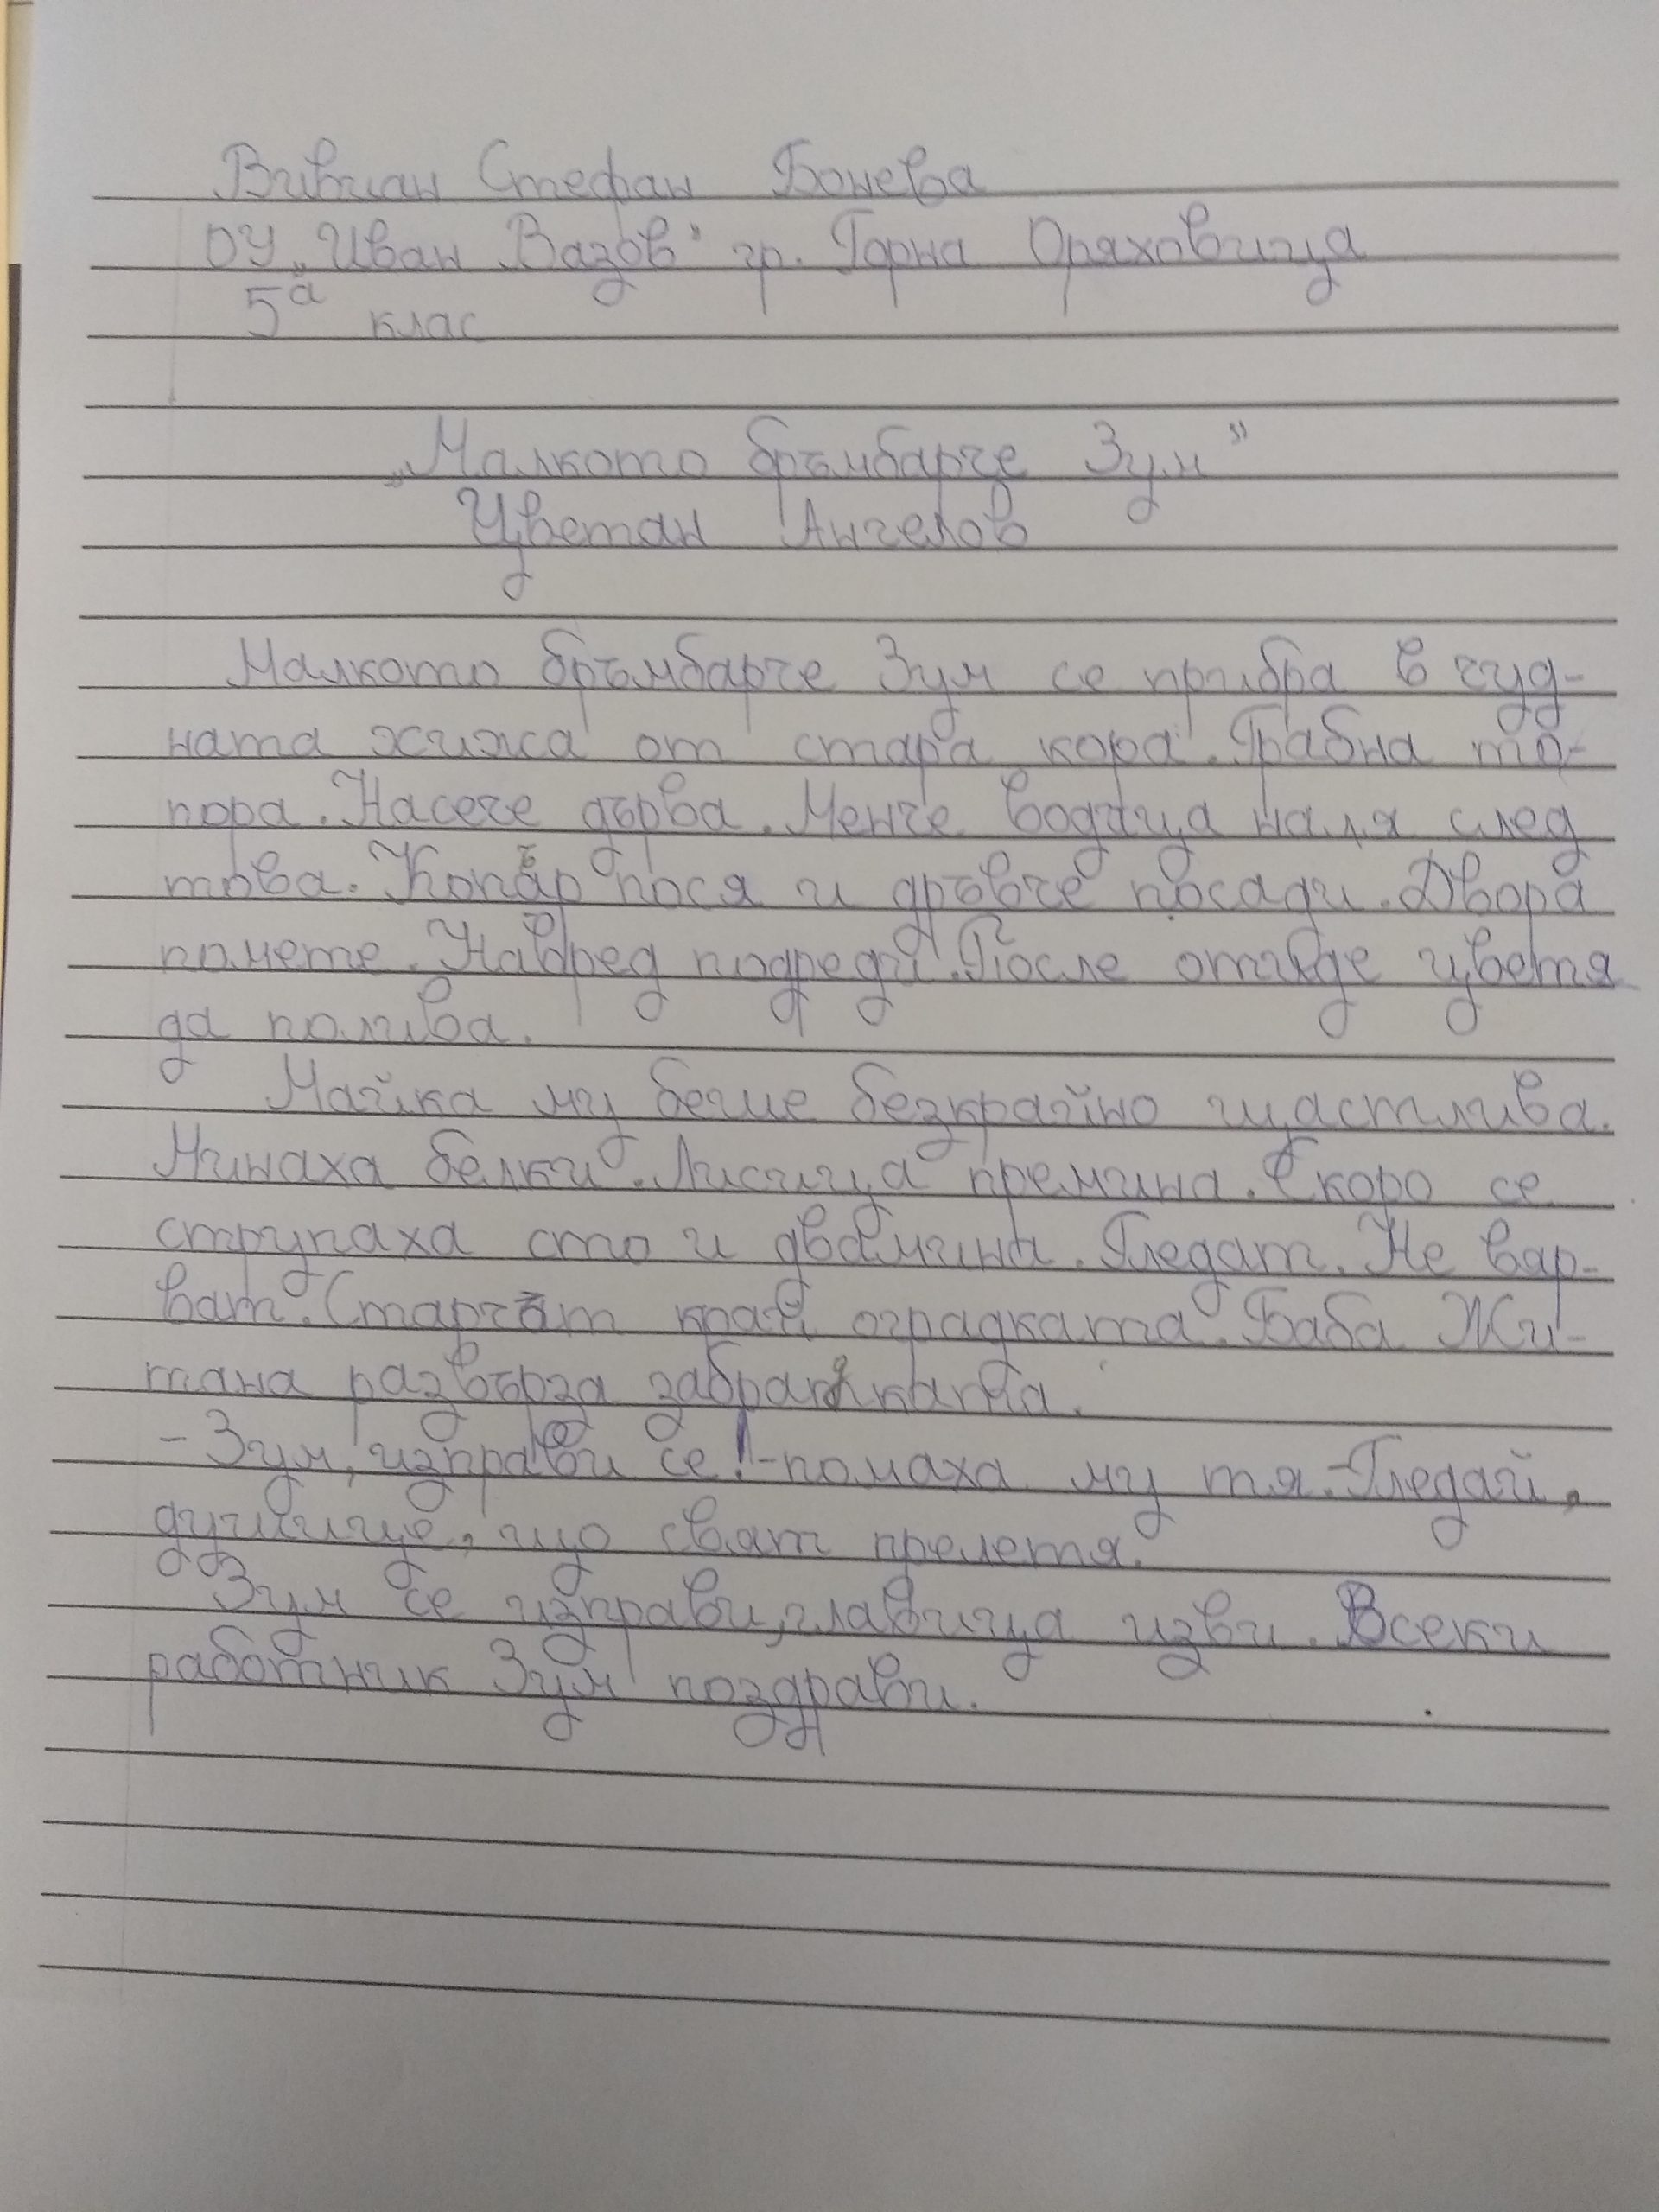 Вивиан Стефан Бонева
ОУ „Иван Вазов" гр. Горна Оряховица
5а клас
„Малкото бръмбарче Зум"
Цветан Ангелов
Малкото бръмбарче Зум се прибра в чуд-
ната хижа от стара кора. Грабна то-
пора. Насече дърва. Менче водица наля след
това. Копър пося и дръвче посади. Двора
помете. Навред подреди. После отиде цветя
да полива.
Майка му беше безкрайно щастлива.
Минаха белки. Лисица премина. Скоро се
струпаха сто и двамина. Гледат. Не вяр-
ват. Стърчат край оградката. Баба Жи-
тана развърза забрадката.
- Зум, изправи се! - помаха му тя. - Гледай,
душице, що сват прелетя.
Зум се изправи, главица изви. Всеки
работник Зум поздрави.